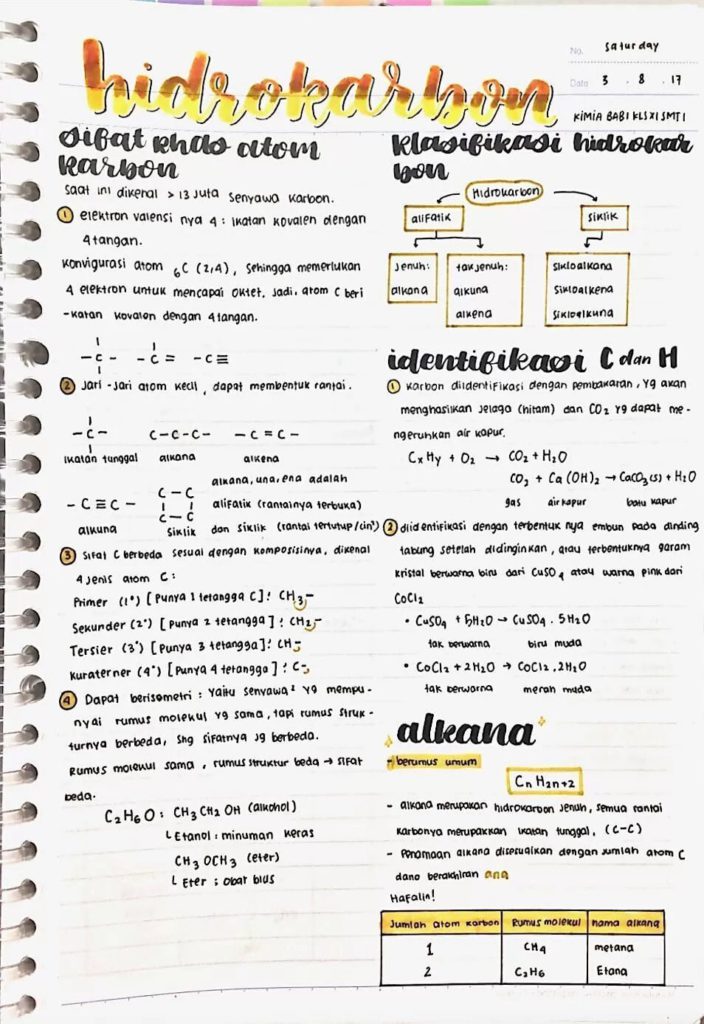 No. Saturday
Date 3 . 8 . 17
hidrokarbon
KIMIA BAB I KLS XI SMT 1
sifat khas atom
karbon
Saat ini dikenal > 13 juta senyawa karbon.
① elektron valensi nya 4 : ikatan kovalen dengan
4 tangan.
Konvigurasi atom ₆C (2,4), sehingga memerlukan
4 elektron untuk mencapai oktet. Jadi, atom C beri
-katan kovalen dengan 4 tangan.
-C- -C= -C≡
② Jari-Jari atom kecil, dapat membentuk rantai.
-C- C-C-C- -C=C-
ikatan tunggal alkana alkena
-C≡C- C-C
C-C
alkuna siklik
alkana, una, ena adalah
alifatik (rantainya terbuka)
dan siklik (rantai tertutup/cin²)
③ Sifat C berbeda sesuai dengan komposisinya, dikenal
4 jenis atom C :
Primer (1°) [Punya 1 tetangga C] : CH₃-
Sekunder (2°) [punya 2 tetangga] : CH₂-
Tersier (3°) [Punya 3 tetangga] : CH-
Kuraterner (4°) [Punya 4 tetangga] : C-
④ Dapat berisometri : Yaitu senyawa² yg mempu-
nyai rumus molekul yg sama, tapi rumus struk-
turnya berbeda, shg sifatnya jg berbeda.
Rumus molekul sama, rumus struktur beda → sifat
beda.
C₂H₆O : CH₃CH₂OH (alkohol)
↳ Etanol : minuman keras
CH₃OCH₃ (eter)
↳ Eter : obat bius
klasifikasi hidrokar
bon
hidrokarbon
alifatik siklik
jenuh: tak jenuh: sikloalkana
alkana alkuna sikloalkena
alkena sikloalkuna
identifikasi C dan H
① Karbon diidentifikasi dengan pembakaran, yg akan
menghasilkan jelaga (hitam) dan CO₂ yg dapat me-
ngeruhkan air kapur.
CxHy + O₂ → CO₂ + H₂O
CO₂ + Ca(OH)₂ → CaCO₃(s) + H₂O
gas air kapur batu kapur
② diidentifikasi dengan terbentuk nya embun pada dinding
tabung setelah didinginkan, atau terbentuknya garam
kristal berwarna biru dari CuSO₄ atau warna pink dari
CoCl₂
• CuSO₄ + 5H₂O → CuSO₄ . 5H₂O
tak berwarna biru muda
• CoCl₂ + 2H₂O → CoCl₂ . 2H₂O
tak berwarna merah muda
alkana
- berumus umum
CnH2n+2
- alkana merupakan hidrokarbon jenuh, semua rantai
karbonya merupakkan ikatan tunggal, (C-C)
- Penamaan alkana disesuaikan dengan jumlah atom C
dano berakhiran ana
Hafalin!
Jumlah atom karbon Rumus molekul nama alkana
1 CH₄ metana
2 C₂H₆ Etana